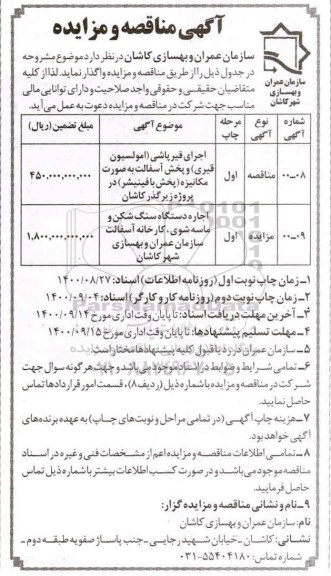 آگهی مناقصه و مزایده
سازمان عمران و بهسازی شهر کاشان
سازمان عمران و بهسازی کاشان در نظر دارد موضوع مشروحه
در جدول ذیل را از طریق مناقصه و مزایده واگذار نماید. لذا از کلیه
متقاضیان حقیقی و حقوقی واجد صلاحیت و دارای توانایی مالی
مناسب جهت شرکت در مناقصه و مزایده دعوت به عمل می‌آید.
شماره آگهی نوع آگهی مرحله چاپ موضوع آگهی مبلغ تضمین (ریال)
۰۰-۰۸ مناقصه اول اجرای قیرپاشی (امولسیون قیری) و پخش آسفالت به صورت مکانیزه (پخش با فینیشر) در پروژه زیرگذر کاشان ۴۵۰,۰۰۰,۰۰۰,۰۰۰
۰۰-۰۹ مزایده اول اجاره دستگاه سنگ شکن و ماسه شوی، کارخانه آسفالت سازمان عمران و بهسازی شهر کاشان ۱,۸۰۰,۰۰۰,۰۰۰,۰۰۰
۱- زمان چاپ نوبت اول (روزنامه اطلاعات) اسناد: ۱۴۰۰/۰۸/۲۷
۲- زمان چاپ نوبت دوم (روزنامه کار و کارگر) اسناد: ۱۴۰۰/۰۹/۰۴
۳- آخرین مهلت دریافت اسناد: تا پایان وقت اداری مورخ ۱۴۰۰/۰۹/۱۴
۴- مهلت تسلیم پیشنهادها: تا پایان وقت اداری مورخ ۱۴۰۰/۰۹/۱۵
۵- سازمان عمران در رد یا قبول کلیه پیشنهادها مختار است.
۶- تمامی شرایط و ضوابط در اسناد موجود می‌باشد و جهت هرگونه سوال جهت
شرکت در مناقصه و مزایده با شماره ذیل (ردیف ۸)، قسمت امور قراردادها تماس
حاصل نمایید.
۷- هزینه چاپ آگهی (در تمامی مراحل و نوبت‌های چاپ) به عهده برنده‌های
آگهی خواهد بود.
۸- تمامی اطلاعات مناقصه و مزایده اعم از مشخصات فنی و غیره در اسناد
مناقصه موجود می‌باشد و در صورت کسب اطلاعات بیشتر با شماره ذیل تماس
حاصل فرمایید.
۹- نام و نشانی مناقصه و مزایده گزار:
نام: سازمان عمران و بهسازی کاشان
نشانی: کاشان - خیابان شهید رجایی - جنب پاساژ صفویه طبقه دوم -
شماره تماس: ۵۵۴۰۴۱۸۰-۰۳۱